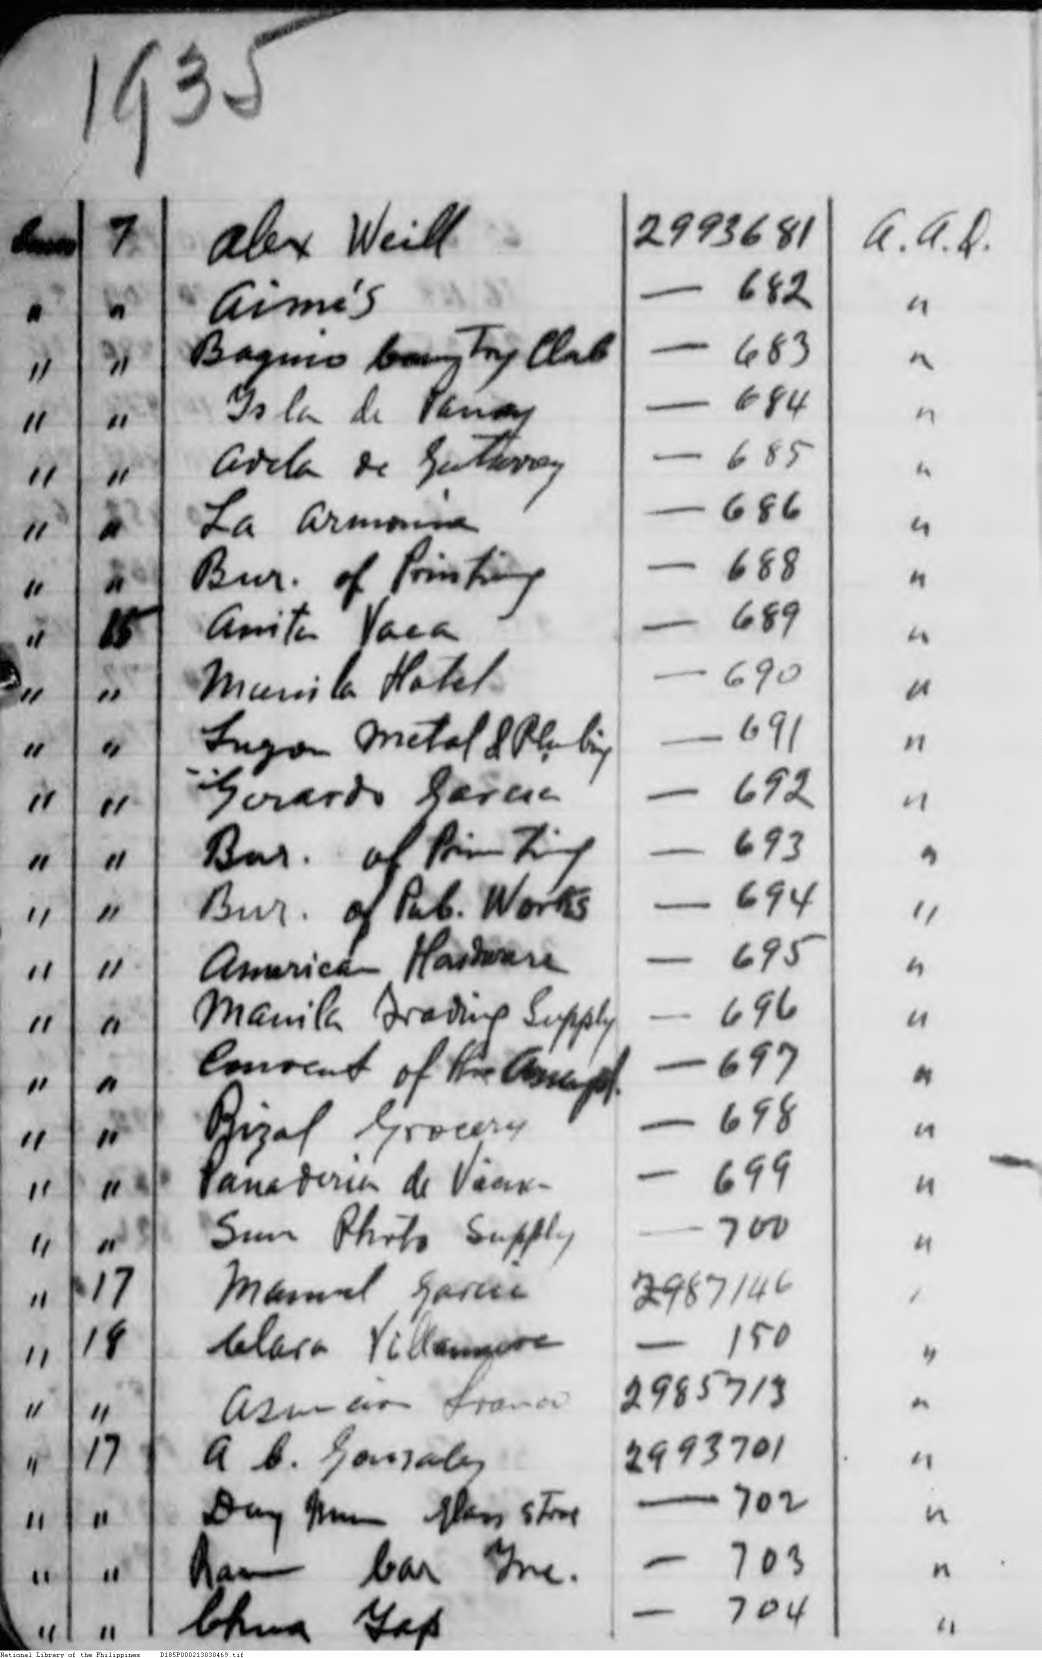 1935
7 Alex Weill 2993681 A.A.D.
" " Aimé's — 682 "
" " Baguio Country Club — 683 "
" " Isla de Panay — 684 "
" " Adela de — 685 "
" " La Armonia — 686 "
" " Bur. of Printing — 688 "
" 15 Anita Vaca — 689 "
" " Manila Hotel — 690 "
" " Luzon Metal & Plumbing — 691 "
" " Gerardo Garcia — 692 "
" " Bur. of Printing — 693 "
" " Bur. of Pub. Works — 694 "
" " American Hardware — 695 "
" " Manila Trading Supply — 696 "
" " Convent of the Assumpt. — 697 "
" " Rizal Grocery — 698 "
" " Panaderia de — 699 "
" " Sun Photo Supply — 700 "
" 17 Manuel Garcia 2987146 "
" 18 Clara Villanueva — 150 "
" " Asuncion 2985713 "
" 17 A C. Gonzalez 2993701 "
" " Glass Store — 702 "
" " Bar Inc. — 703 "
" " Chua Yap — 704 "
National Library of the Philippines D185P000213030469.tif